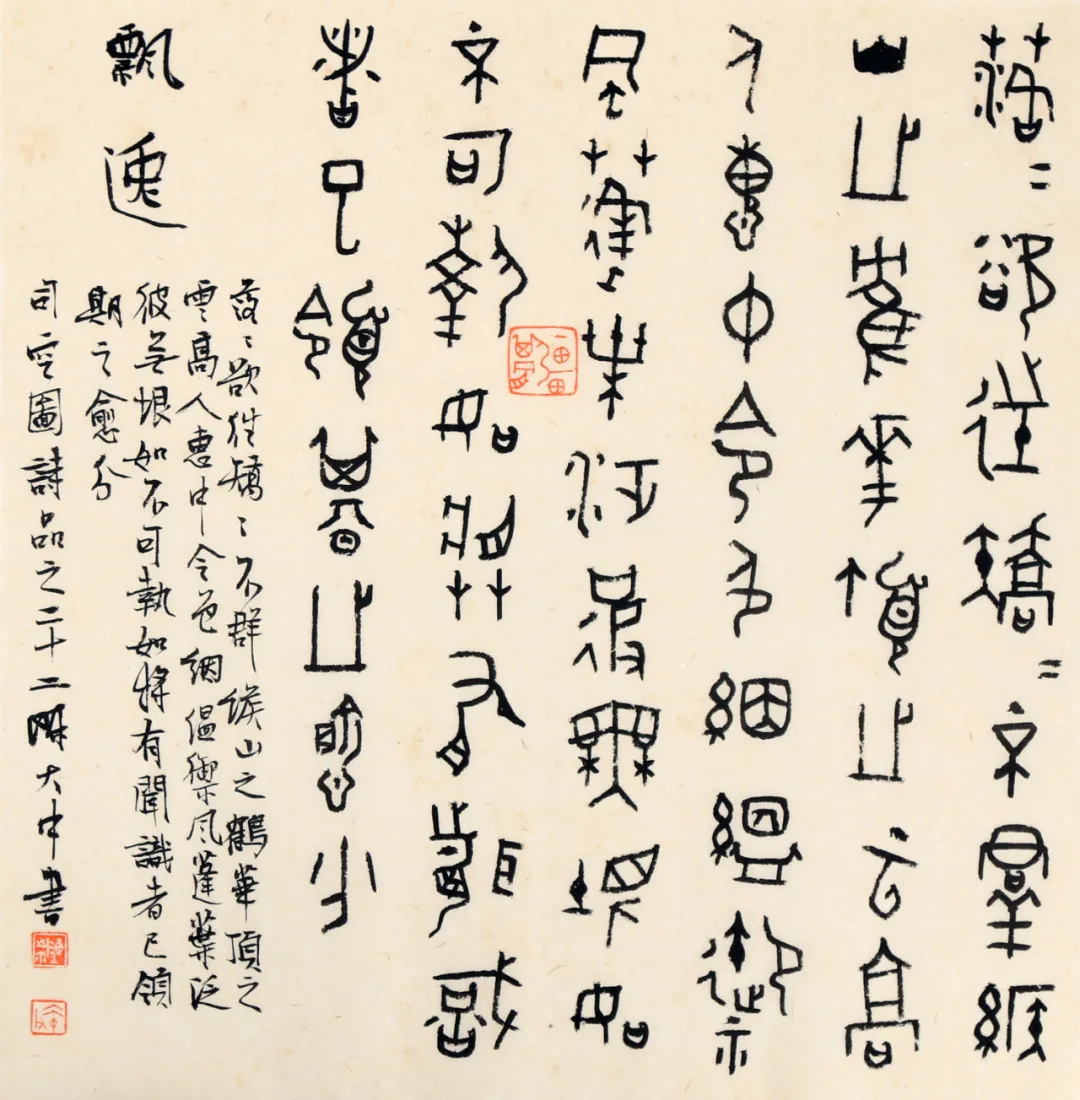 落〻欲往矯〻不群緱
山之鶴華頂之云高
人惠中令色絪縕禦
風蓬葉泛彼無垠如
不可執如將有聞識
者已領期之愈分
飄逸
落〻欲往矯〻不群緱山之鶴華頂之
雲高人惠中令色絪縕禦風蓬葉泛
彼無垠如不可執如將有聞識者已領
期之愈分
司空圖詩品之二十二陳大中書